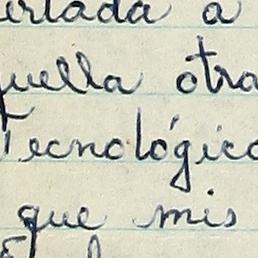 ertada a
quella otra
Tecnológico
que mis